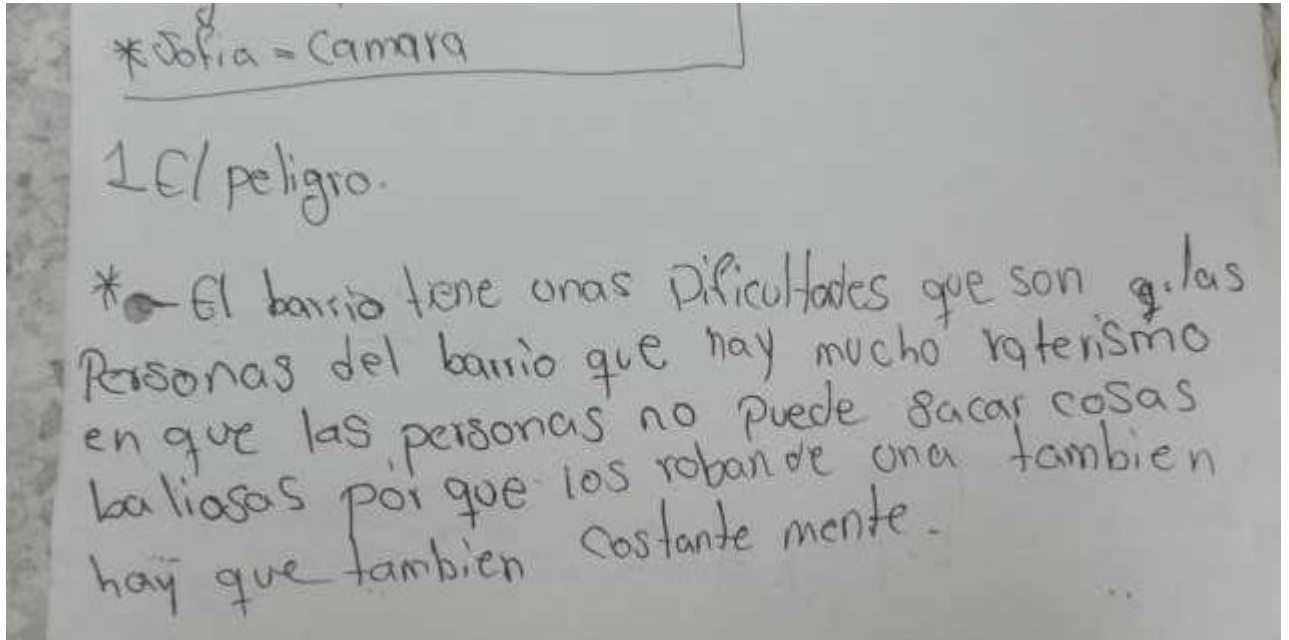 *Sofia = Camara
1 El peligro.
* El barrio tiene unas Dificultades que son q. las
Personas del barrio que hay mucho raterismo
en que las personas no puede sacar cosas
baliosas por que los roban de una tambien
hay que tambien costante mente.